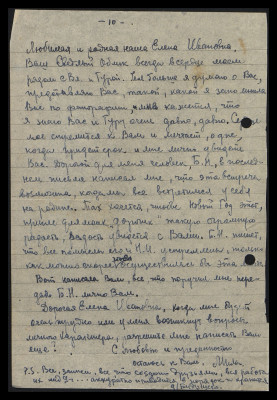 – 10 –
Любимая и родная наша Елена Ивановна,
Ваш Светлый облик всегда в сердце моем
рядом с Вл. и Гуру. Чем больше я думаю о Вас,
представляю Вас, такой, какой я запомнила
Вас по фотографии, мне кажется, что
я знаю Вас и Гуру очень давно, давно. Серд-
мое стремится к Вам и мечтает о дне,
когда придет срок и мне лично увидеть
Вас. Дорогой для меня человек, Б.Н., в послед-
нем письме написал мне, что эта встреча
возможна, когда мы все встретимся у себя
на родине. Так хочется, чтобы Новый Год этот,
принес для моих "дорогих" такую огромную
радость, радость увидеться с Вами. Б.Н. пишет,
что все помыслы его и Н.И. устремлены, только
как можно скорее осуществилась бы эта
Вот написала Вам, все что поручил мне пере-
дать Б.Н. лично Вам.
Дорогая Елена Ивановна, когда мне будет
очень трудно или у меня возникнут вопросы
личного характера, разрешите мне написать Вам
еще?
С любовью и преданностью
остаюсь с Вами
P.S. Все, записи, все что создано друзьями, вся работа
их аккуратно приводится в порядок и хранится